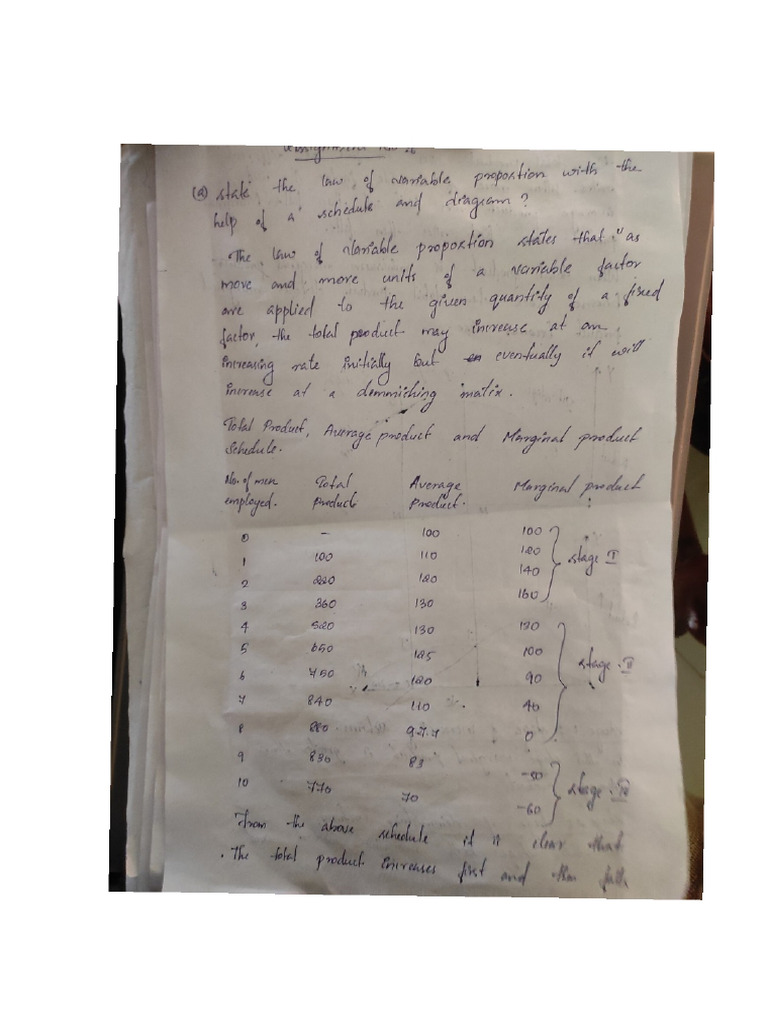 Assignment No
(a) state the law of variable proportion with the
help of a schedule and diagram?
The law of variable proportion states that "as
more and more units of a variable factor
are applied to the given quantity of a fixed
factor, the total product may increase at an
increasing rate initially but eventually it will
increase at a demmishing matix.
Total Product, Average product and Marginal product
Schedule.
No. of men Total Average Marginal product
employed. Product Product.
0 - 100 100
1 100 110 120 Stage I
2 220 120 140
3 360 130 160
4 520 130 130
5 650 125 100 stage II
6 750 120 90
7 840 110 40
8 880 97.7 0
9 830 83 -50 stage III
10 770 70 -60
From the above schedule it is clear that
. The total product increases first and than falls